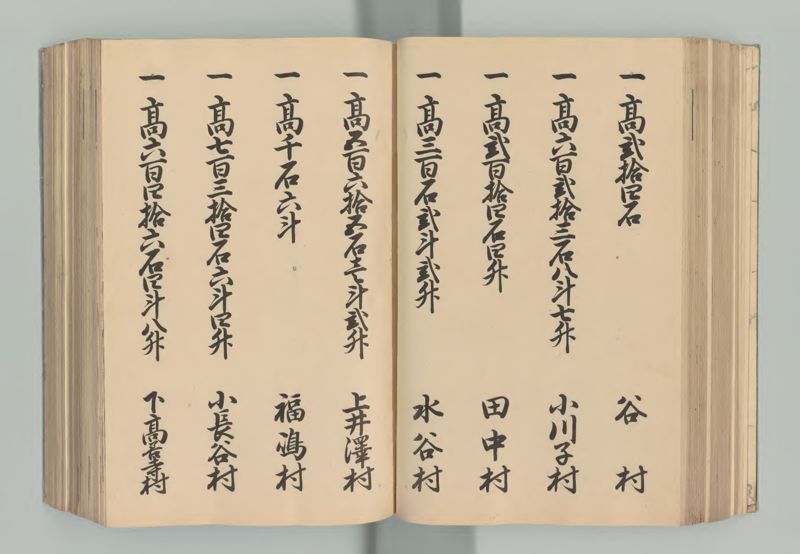 一 高弐拾四石 谷村
一 高六百弐拾三石八斗七升 小川子村
一 高弐百拾四石四升 田中村
一 高三百石弐斗弐升 水谷村
一 高五百六拾五石壱斗弐升 上井澤村
一 高千石六斗 福嶋村
一 高七百三拾四石六斗四升 小長谷村
一 高六百四拾六石四斗八升 下高善寺村